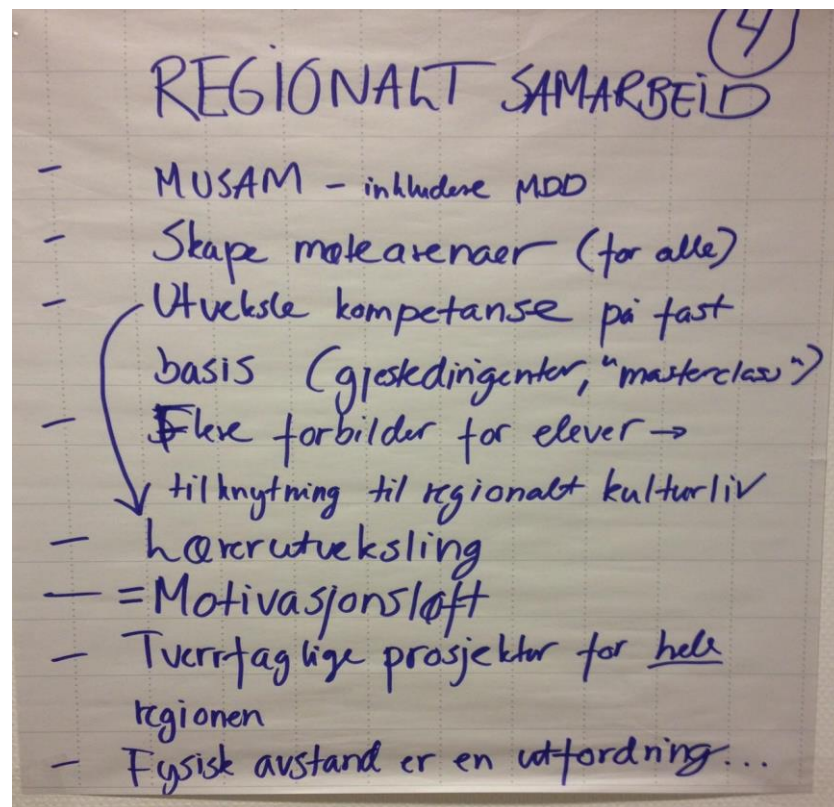 4
REGIONALT SAMARBEID
- MUSAM - inkludere MDD
- Skape møtearenaer (for alle)
- Utveksle kompetanse på fast
basis (gjestedirigenter, "masterclass")
- Flere forbilder for elever →
tilknytning til regionalt kulturliv
- Lærerutveksling
- = Motivasjonsløft
- Tverrfaglige prosjekter for hele
regionen
- Fysisk avstand er en utfordring...